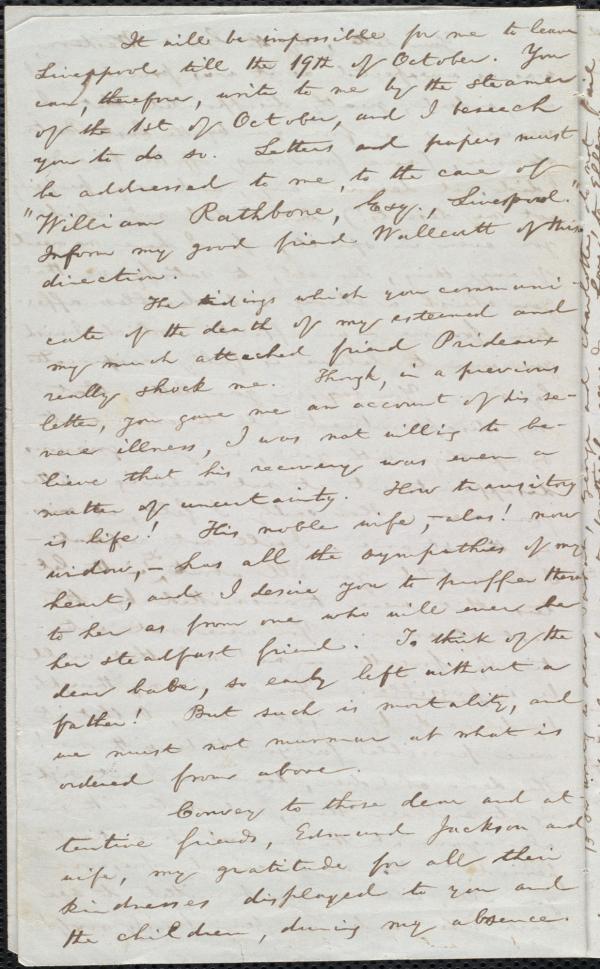 It will be impossible for me to leave
Liverpool till the 19th of October. You
can, therefore, write to me by the steamer
of the 1st of October, and I beseech
you to do so. Letters and papers must
be addressed to me, to the care of
"William Rathbone, Esq., Liverpool."
Inform my good friend Wallcutt of this
direction.
The tidings which you communi-
cate of the death of my esteemed and
my much attached friend Prideaux
really shock me. Though, in a previous
letter, you gave me an account of his se-
vere illness, I was not willing to be-
lieve that his recovery was even a
matter of uncertainty. How transitory
is life! His noble wife, – alas! now
widow, – has all the sympathies of my
heart, and I desire you to proffer them
to her as from one who will ever be
her steadfast friend. To think of the
dear babe, so early left without a
father! But such is mortality, and
we must not murmur at what is
ordered from above.
Convey to those dear and at
tentive friends, Edmund Jackson and
wife, my gratitude for all their
kindnesses displayed to you and
the children, during my absence.